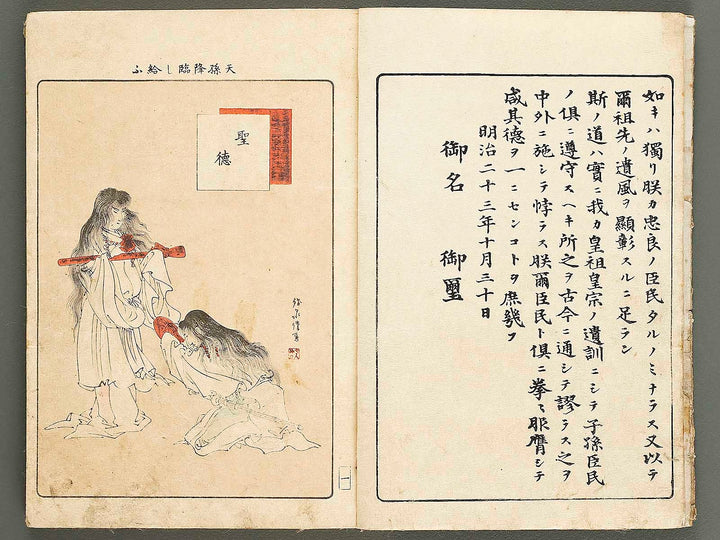 如キハ獨リ朕カ忠良ノ臣民タルノミナラス又以テ
爾祖先ノ遺風ヲ顯彰スルニ足ラン
斯ノ道ハ實ニ我カ皇祖皇宗ノ遺訓ニシテ子孫臣民
ノ俱ニ遵守スヘキ所之ヲ古今ニ通シテ謬ラス之ヲ
中外ニ施シテ悖ラス朕爾臣民ト俱ニ拳々服膺シテ
咸其德ヲ一ニセンコトヲ庶幾フ
明治二十三年十月三十日
御名 御璽
天孫降臨し給ふ
聖
德
一